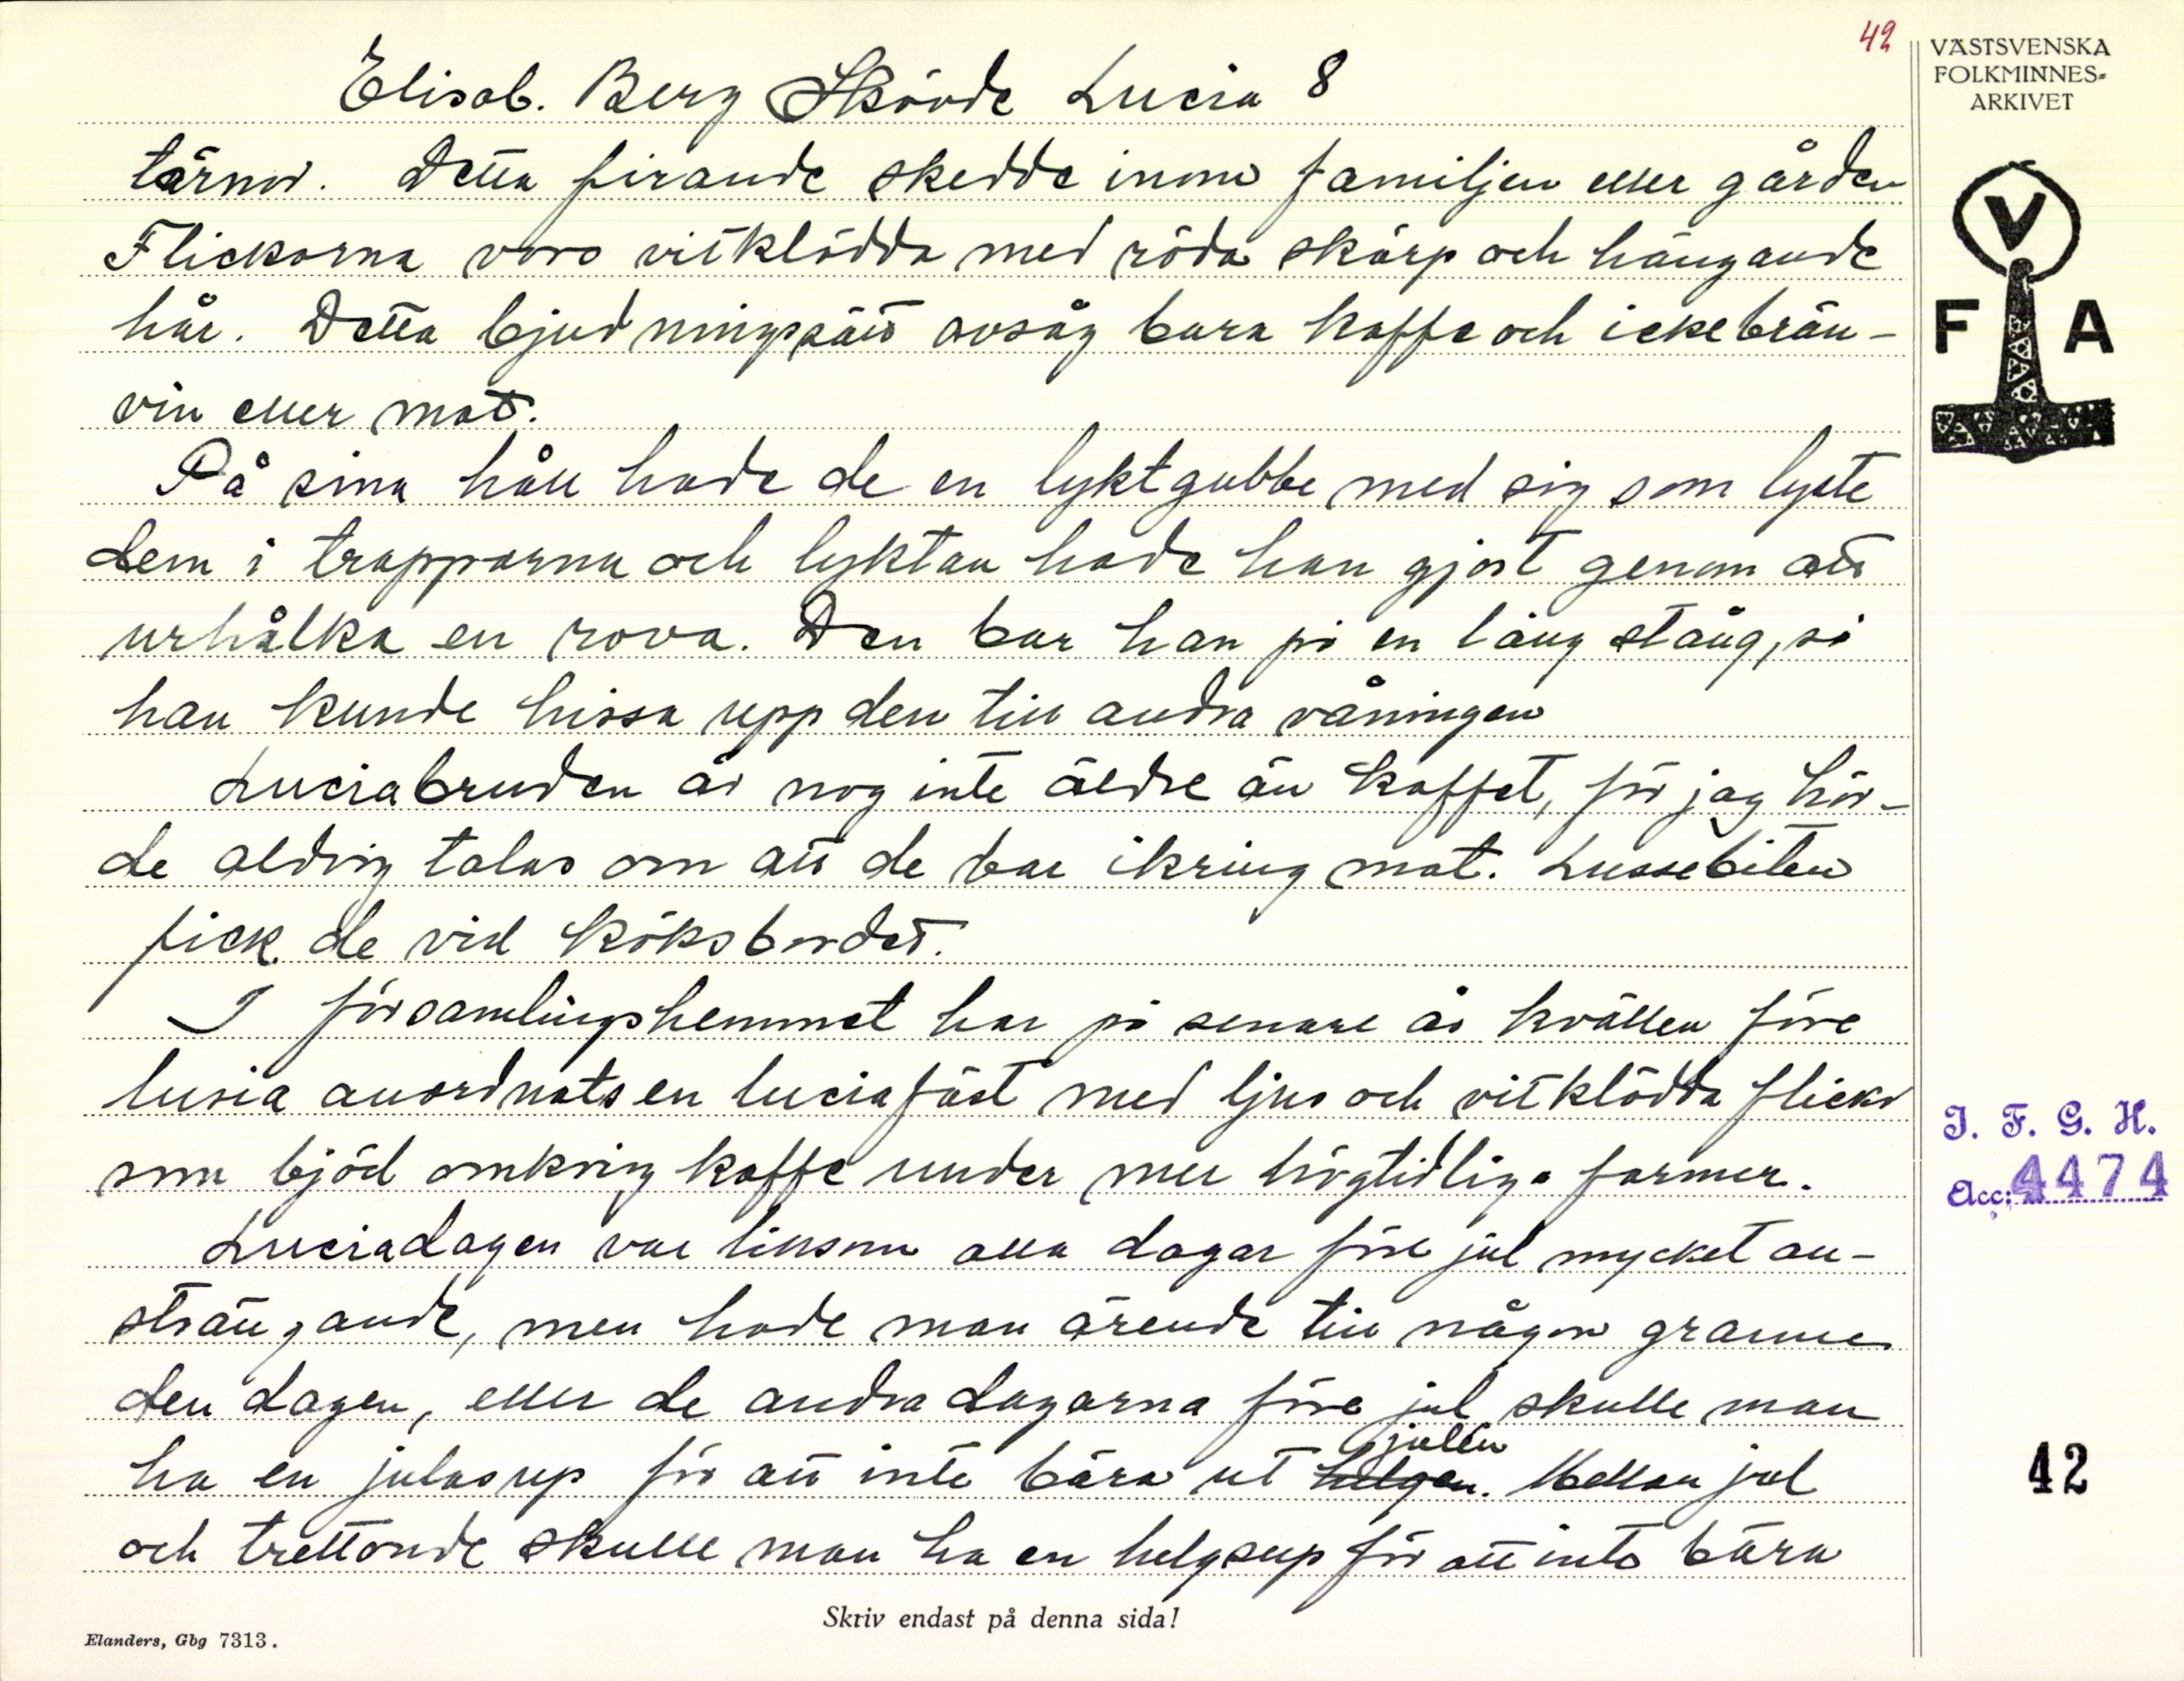 42
VÄSTSVENSKA
FOLKMINNES-
ARKIVET
Elisab. Berg Skövde Lucia 8
tärnor. Detta firande skedde inom familjen eller gården
Flickorna voro vitklädda med röda skärp och hängande
hår. Detta bjudningssätt avsåg bara kaffe och icke brän-
vin eller mat.
På sina håll hade de en lyktgubbe med sig som lyste
dem i trapporna och lyktan hade han gjort genom att
urhålka en rova. Den bar han på en lång stång, så
han kunde hissa upp den till andra våningen
Luciabruden är nog inte äldre än kaffet, för jag hör-
de aldrig talas om att de bar ikring mat. Lussebiten
fick de vid köksbordet.
I församlingshemmet har på senare år kvällen före
lusia anordnats en luciafäst med ljus och vitklädda flickor
som bjöd omkring kaffe under mer högtidliga former.
Luciadagen var liksom alla dagar före jul mycket an-
strängande, men hade man ärende till någon granne
den dagen, eller de andra dagarna före jul skulle man
julen
ha en julasup för att inte bära ut helgen. Mellan jul
och trettonde skulle man ha en helgsup för att inte bära
V
F A
I. F. G. H.
Acc: 4474
42
Skriv endast på denna sida!
Elanders, Gbg 7313.